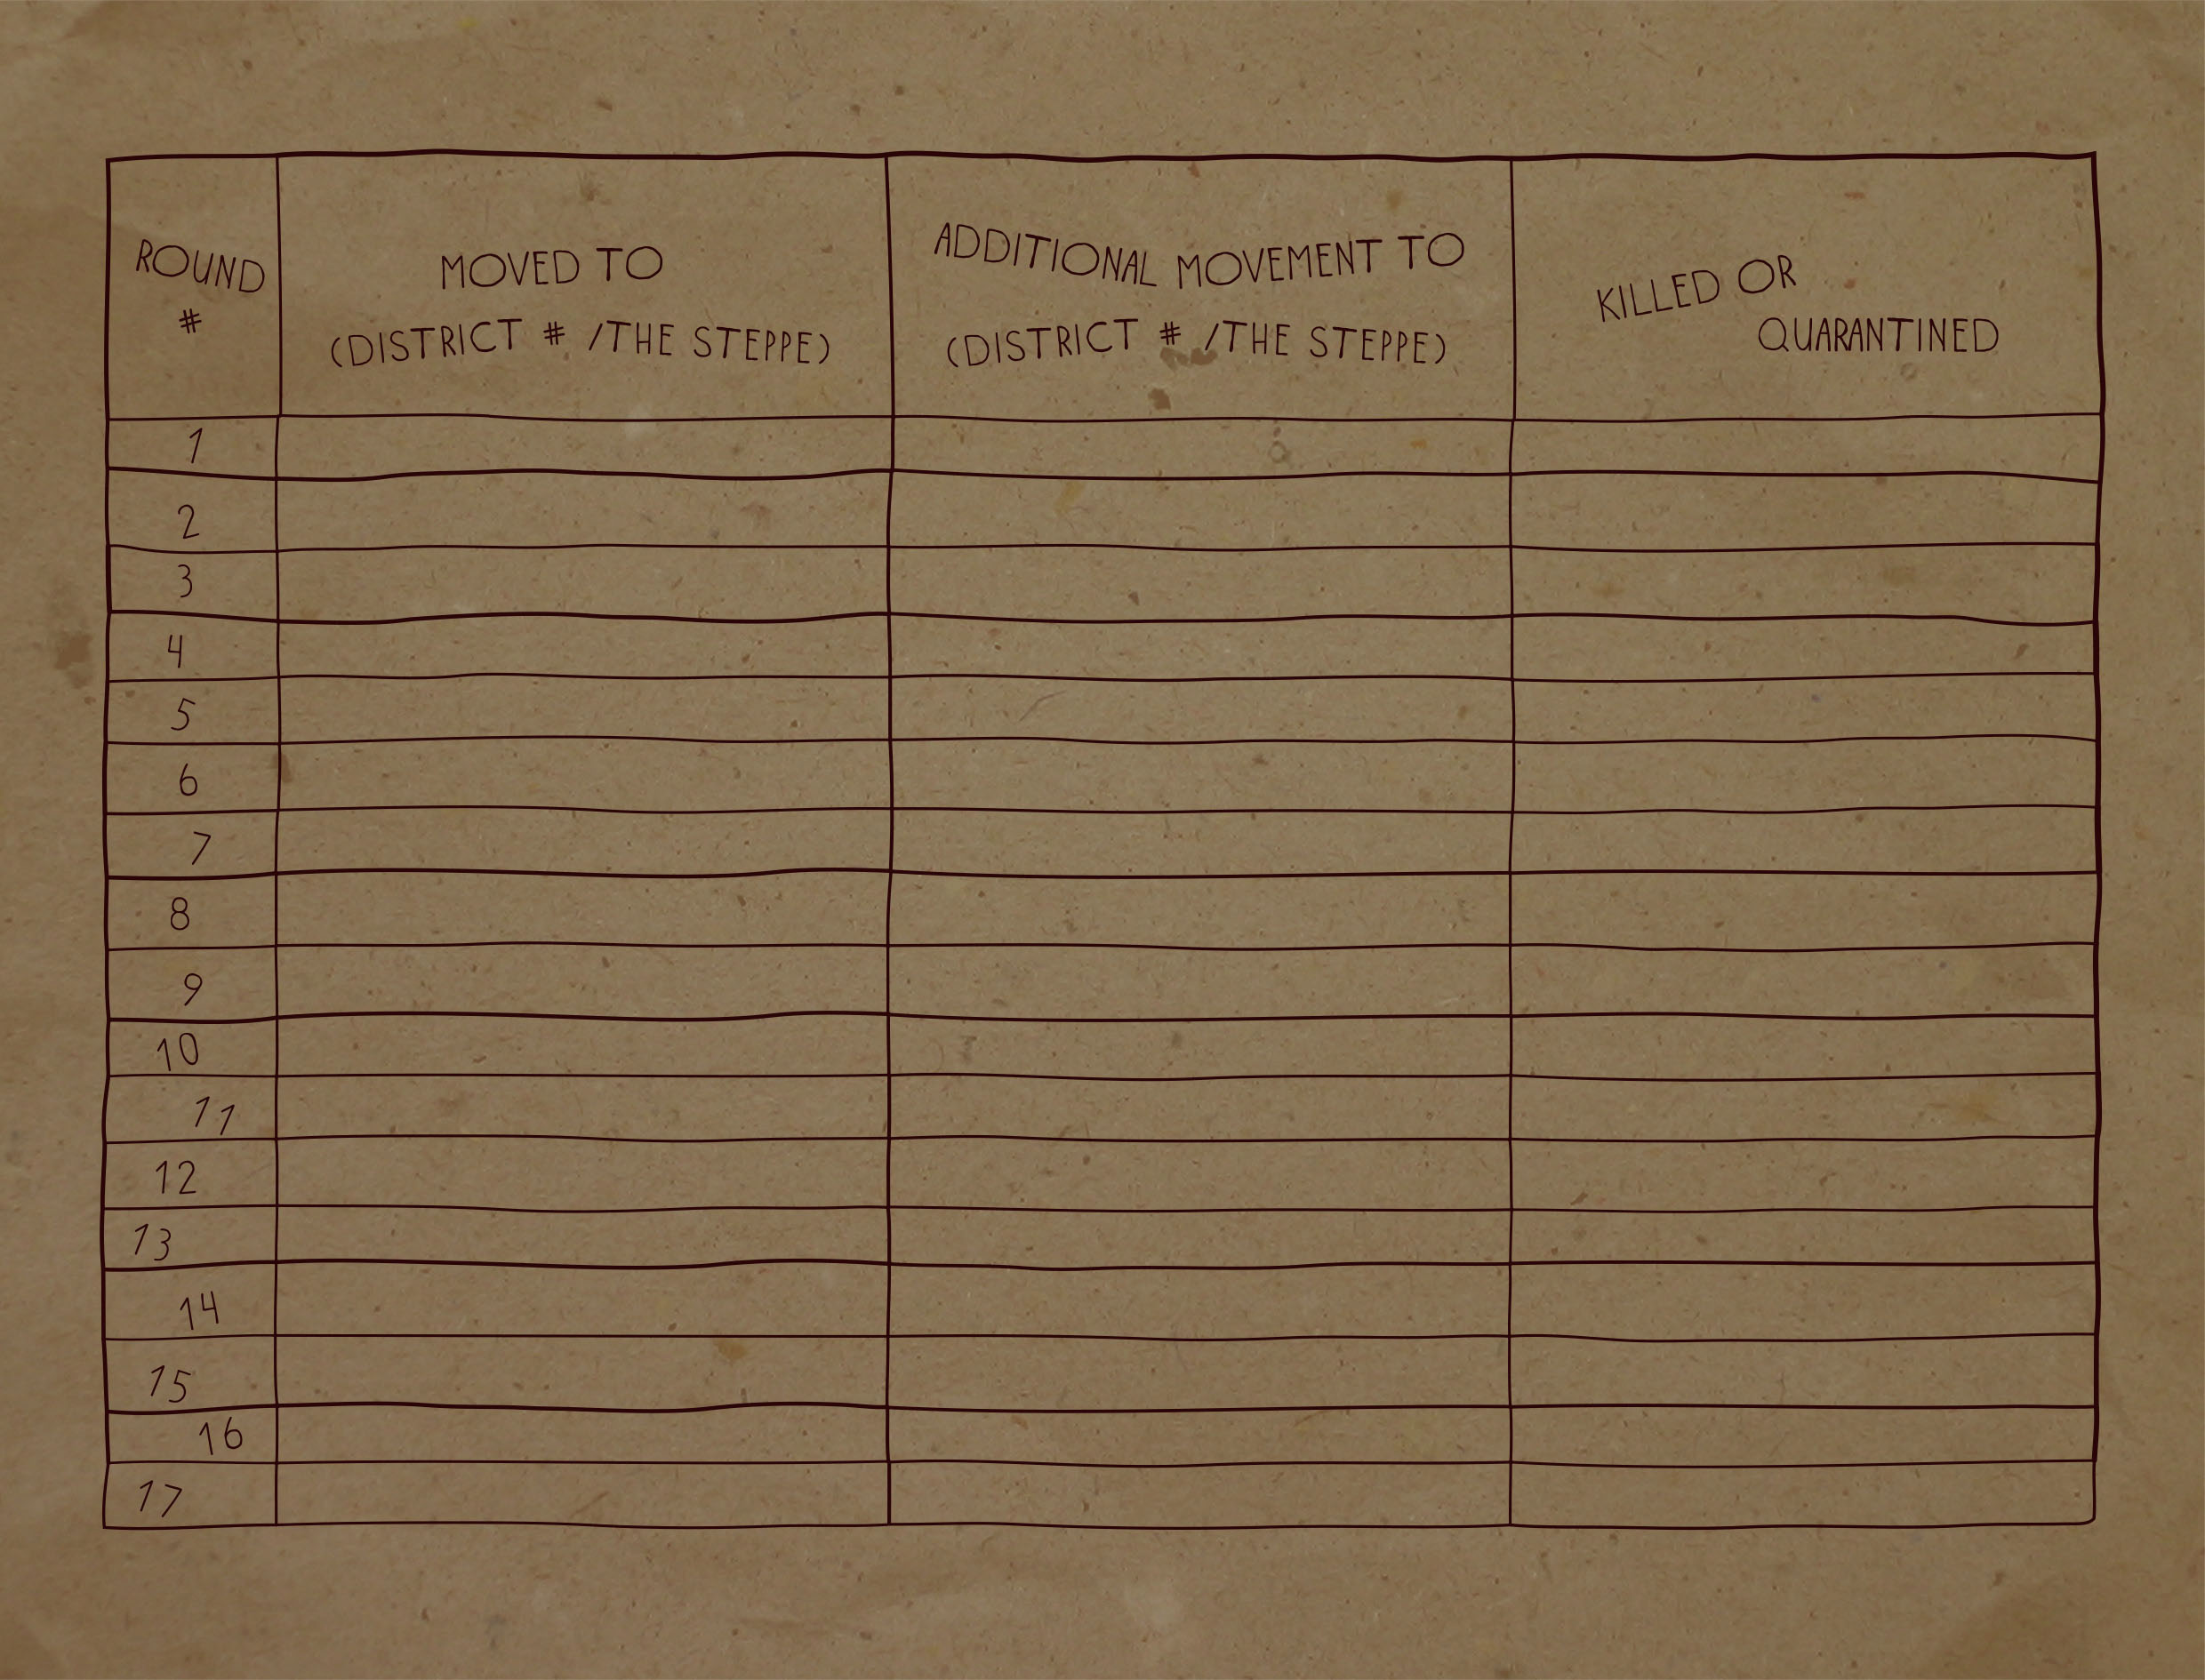 ROUND
#
MOVED TO
(DISTRICT # /THE STEPPE)
ADDITIONAL MOVEMENT TO
(DISTRICT # /THE STEPPE)
KILLED OR
QUARANTINED
1
2
3
4
5
6
7
8
9
10
11
12
13
14
15
16
17